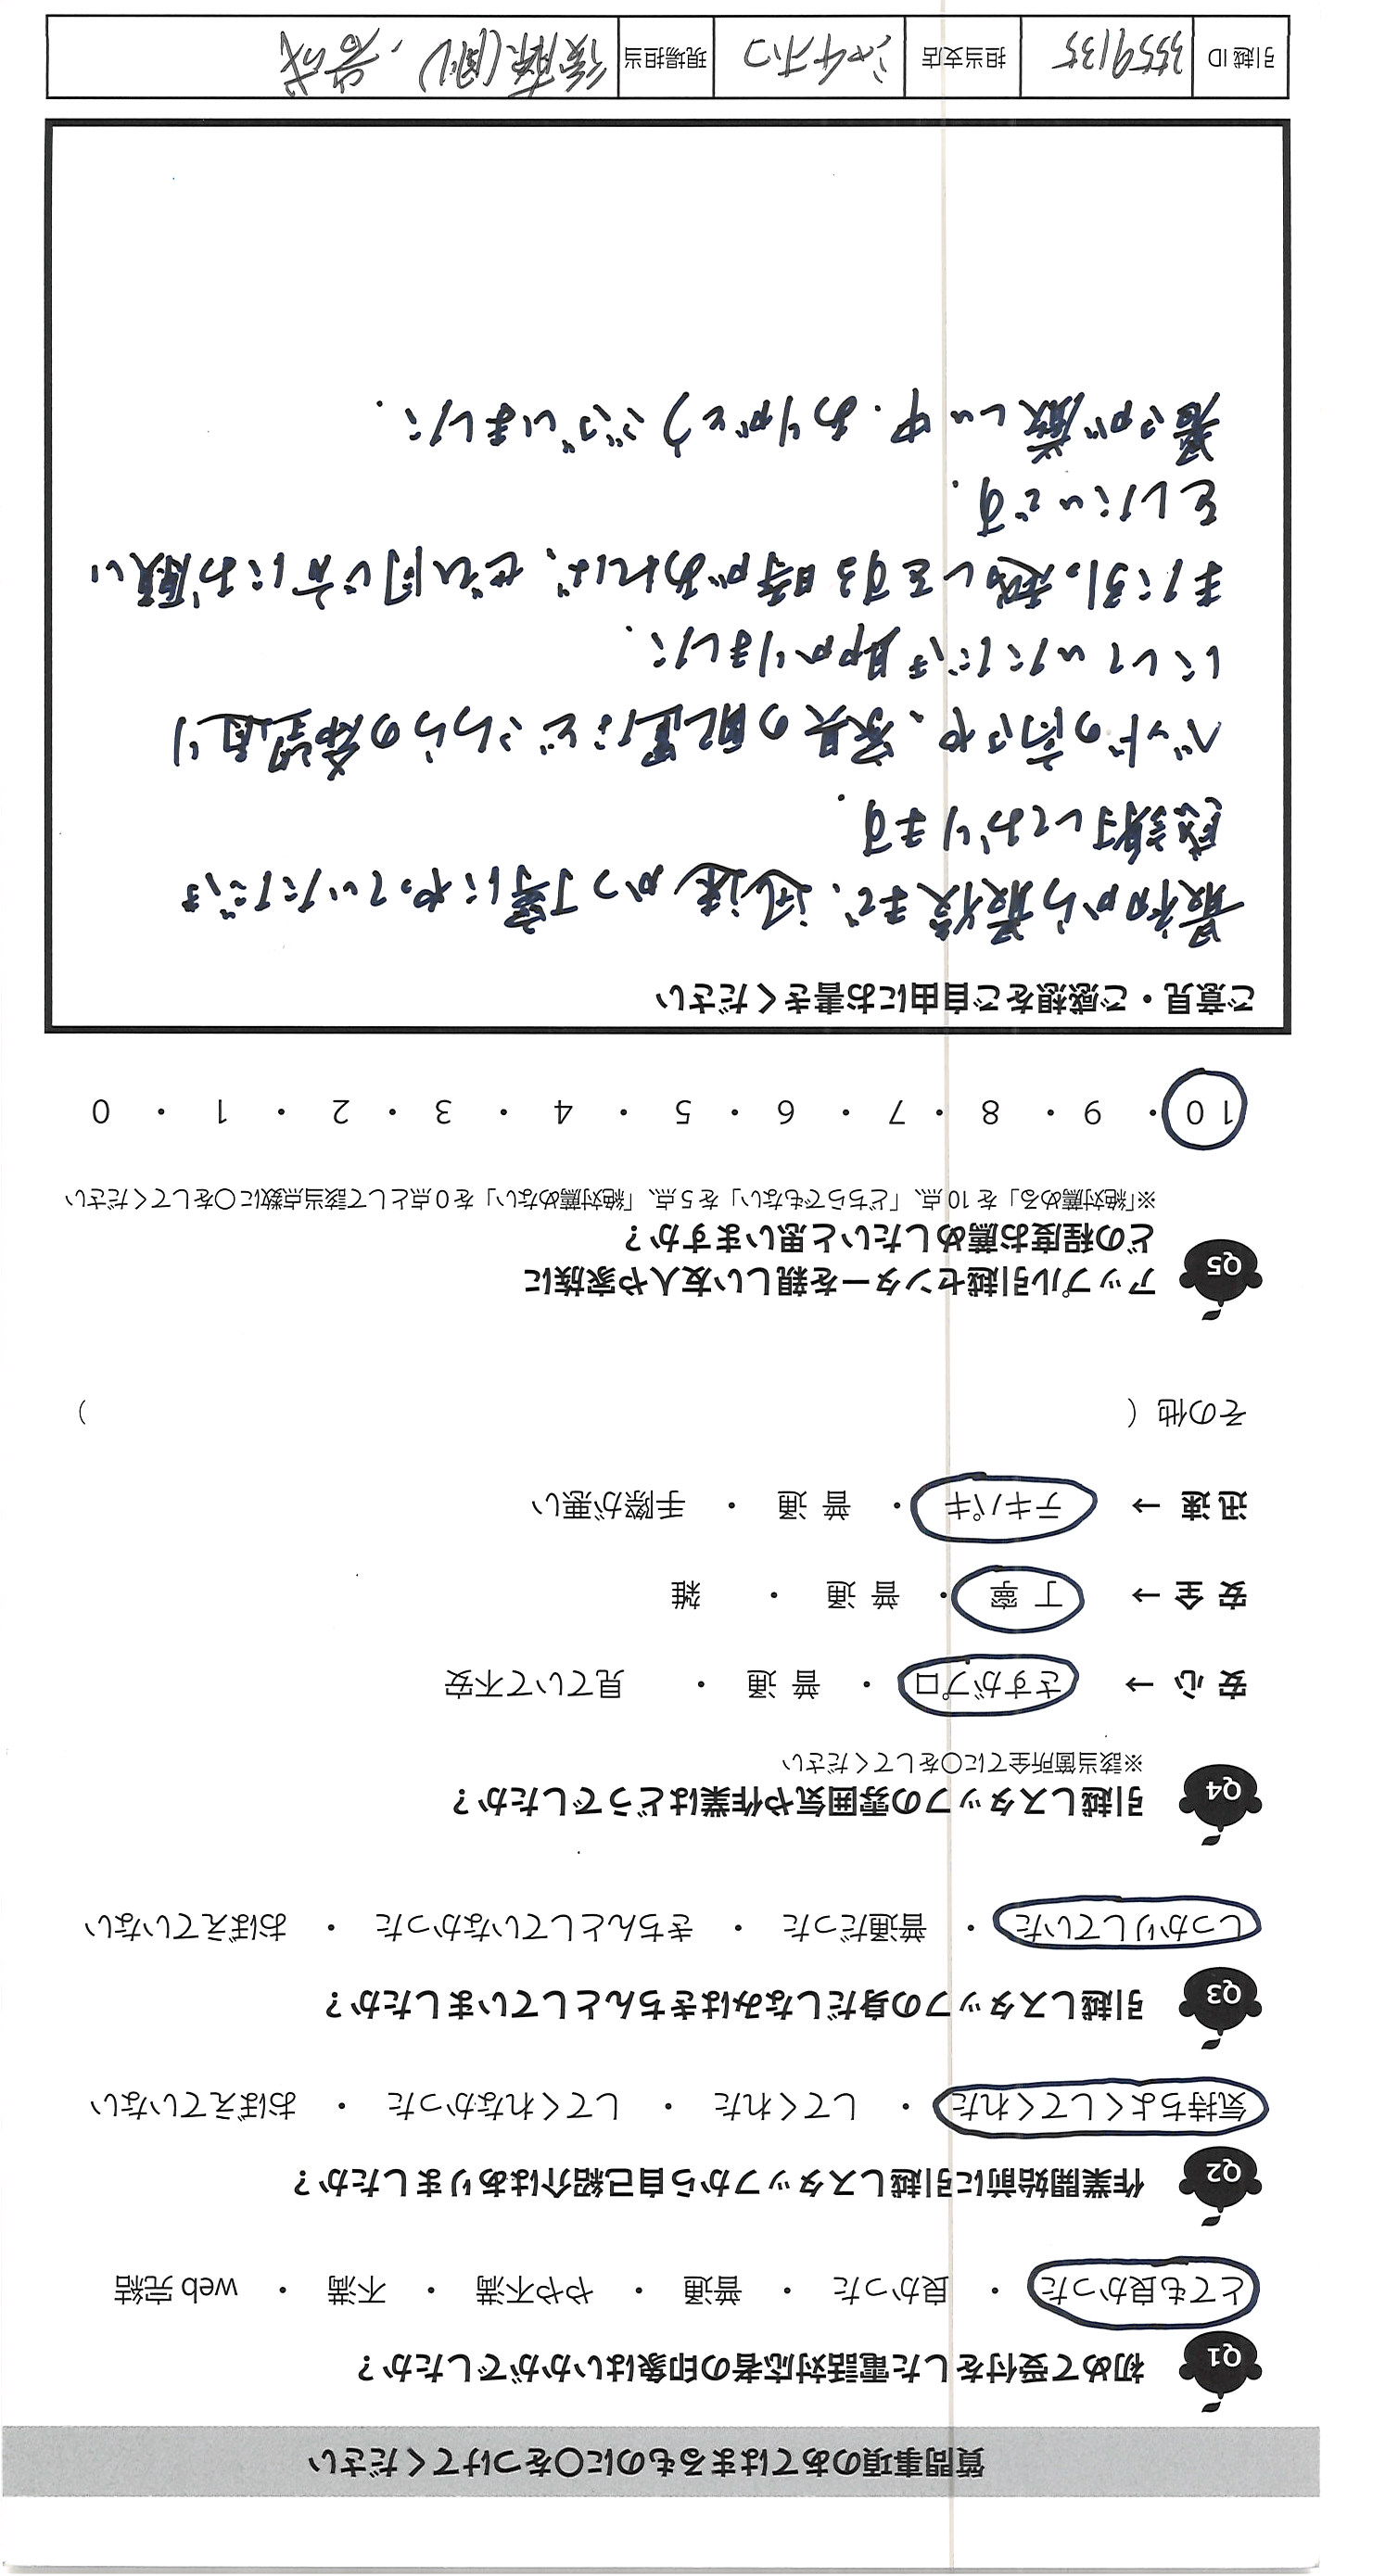 質問事項のあてはまるものに○をつけてください
Q1 初めて受付をした電話対応者の印象はいかがでしたか？
とても良かった ・ 良かった ・ 普通 ・ やや不満 ・ 不満 ・ web 完結
Q2 作業開始前に引越しスタッフから自己紹介はありましたか？
気持ちよくしてくれた ・ してくれた ・ してくれなかった ・ おぼえていない
Q3 引越しスタッフの身だしなみはきちんとしていましたか？
しっかりしていた ・ 普通だった ・ きちんとしていなかった ・ おぼえていない
Q4 引越しスタッフの雰囲気や作業はどうでしたか？
※該当箇所全てに○をしてください
安心 → さすがプロ ・ 普通 ・ 見ていて不安
安全 → 丁寧 ・ 普通 ・ 雑
迅速 → テキパキ ・ 普通 ・ 手際が悪い
その他（ ）
Q5 アップル引越センターを親しい友人や家族に
どの程度お薦めしたいと思いますか？
※「絶対薦める」を 10 点、「どちらでもない」を 5 点、「絶対薦めない」を 0 点として該当点数に○をしてください
10 ・ 9 ・ 8 ・ 7 ・ 6 ・ 5 ・ 4 ・ 3 ・ 2 ・ 1 ・ 0
ご意見・ご感想をご自由にお書きください
最初から最後まで、迅速かつ丁寧にやっていただき
感謝しております.
ベッドの高さや、家具の配置などこちらの希望通り
にしていただき助かりました.
また引っ越しをする時があれば、ぜひ同じ方にお願い
をしたいです.
暑さが厳しい中、ありがとうございました.
引越 ID 3559135 担当支店 現場担当